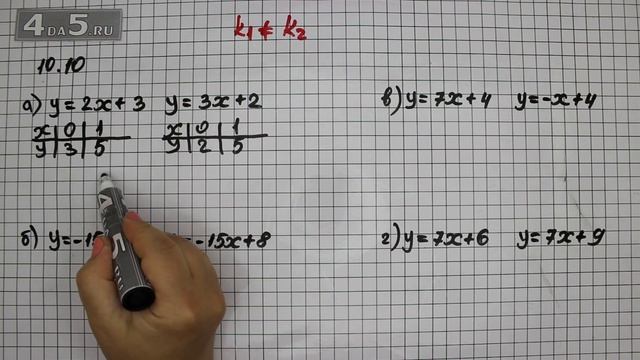 4 DA 5.RU
k₁ ≠ k₂
10.10
а) y = 2x + 3 y = 3x + 2
x | 0 | 1
y | 3 | 5
x | 0 | 1
y | 2 | 5
в) y = 7x + 4 y = -x + 4
б) y = -15x + 8
г) y = 7x + 6 y = 7x + 9